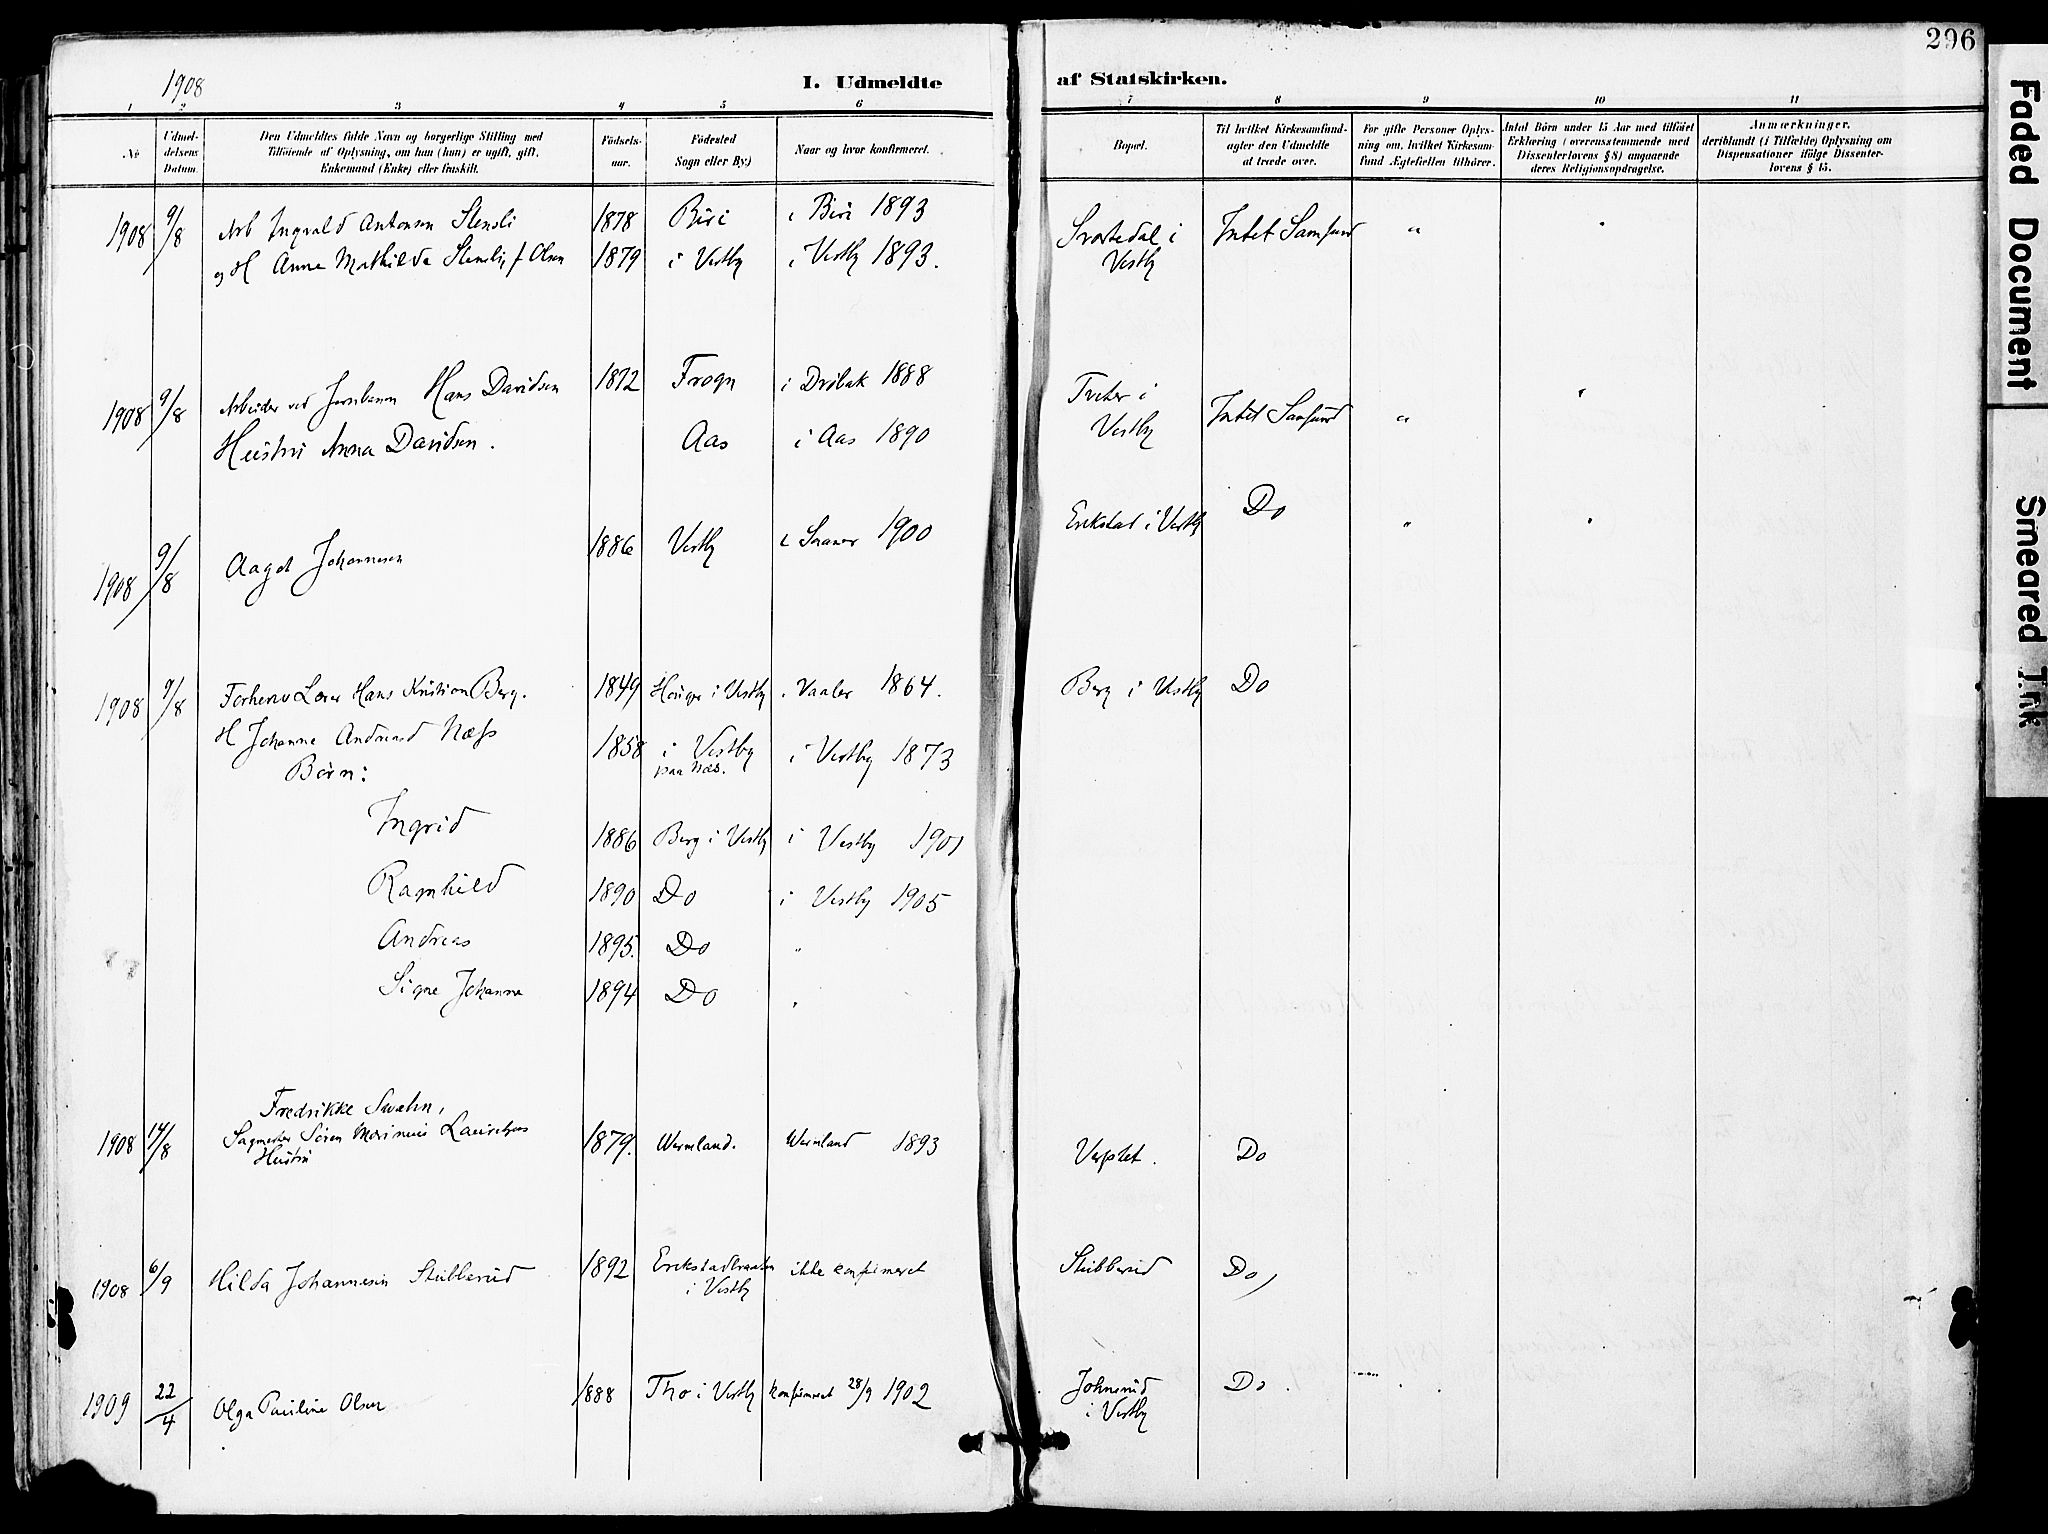 296
1908
I. Udmeldte af Statskirken.
1 2 3 4 5 6 7 8 9 10 11
No
Udmel-
delsens
Datum.
Den Udmeldtes fulde Navn og borgerlige Stilling med
Tilföiende af Oplysning, om han (hun) er ugift, gift,
Enkemand (Enke) eller fraskilt.
Födsels-
aar.
Födested
Sogn eller By.)
Naar og hvor konfirmeret.
Bopæl.
Til hvilket Kirkesamfund-
agter den Udmeldte
at træde over.
For gifte Personer Oplys-
ning om, hvilket Kirkesam-
fund Ægtefællen tilhörer.
Antal Börn under 15 Aar med tilföiet
Erklæring (overensstemmende med
Dissenterlovens § 8) angaaende
deres Religionsopdragelse.
Anmærkninger,
deriblandt (i Tilfælde) Oplysning om
Dispensationer ifölge Dissenter-
lovens § 15.
1908 9/8 Arb Ingvald Antonsen Stensli 1878 Biri i Biri 1893 Svartedal i Intet Samfund " "
og H Anna Mathilda Stensli, f Olsen 1879 i Vestby i Vestby 1893. Vestby
1908 9/8 Arbeider ved Jernbanen Hans Davidsen 1872 Frogn i Dröbak 1888 Tveter i Intet Samfund " "
Hustru Anna Davidsen. Aas i Aas 1890 Vestby
1908 9/8 Aagot Johannesen 1886 Vestby i Saaner 1900 Erikstad i Vestby Do " "
1908 9/8 Forhenv Lærer Hans Kristian Berg. 1849 i Vestby i Vaaler 1864. Berg i Vestby Do
H Johanne Andrea Næss 1858 i Vestby i Vestby 1873
paa Næs.
Börn:
Ingrid 1886 Berg i Vestby i Vestby 1901
Ragnhild 1890 Do i Vestby 1905
Andreas 1895. Do "
Signe Johanna 1894 Do "
Fredrikke Swahn,
1908 14/8 Sagmester Sören Marinius 1879. Wermland. Wermland 1893 Do
Hustru
1908 6/9 Hilda Johannesen Stubberud 1892 Erikstadbraaten ikke konfirmeret Stubberud Do
i Vestby
1909 22/4 Olga Pauline Olsen 1888 Tho i Vestby konfirmeret 28/9 1902 Johnsrud Do.
i Vestby
Faded Document
Smeared Ink